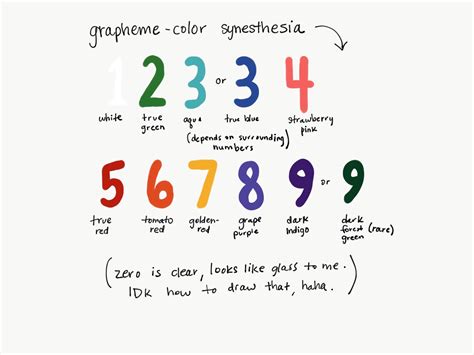 grapheme-color synesthesia
1 2 3 or 3 4
white true green aqua true blue strawberry pink
(depends on surrounding numbers)
5 6 7 8 9 or 9
true red tomato red golden-rod grape purple dark indigo dark forest green (rare)
(zero is clear, looks like glass to me.
IDK how to draw that, haha.)